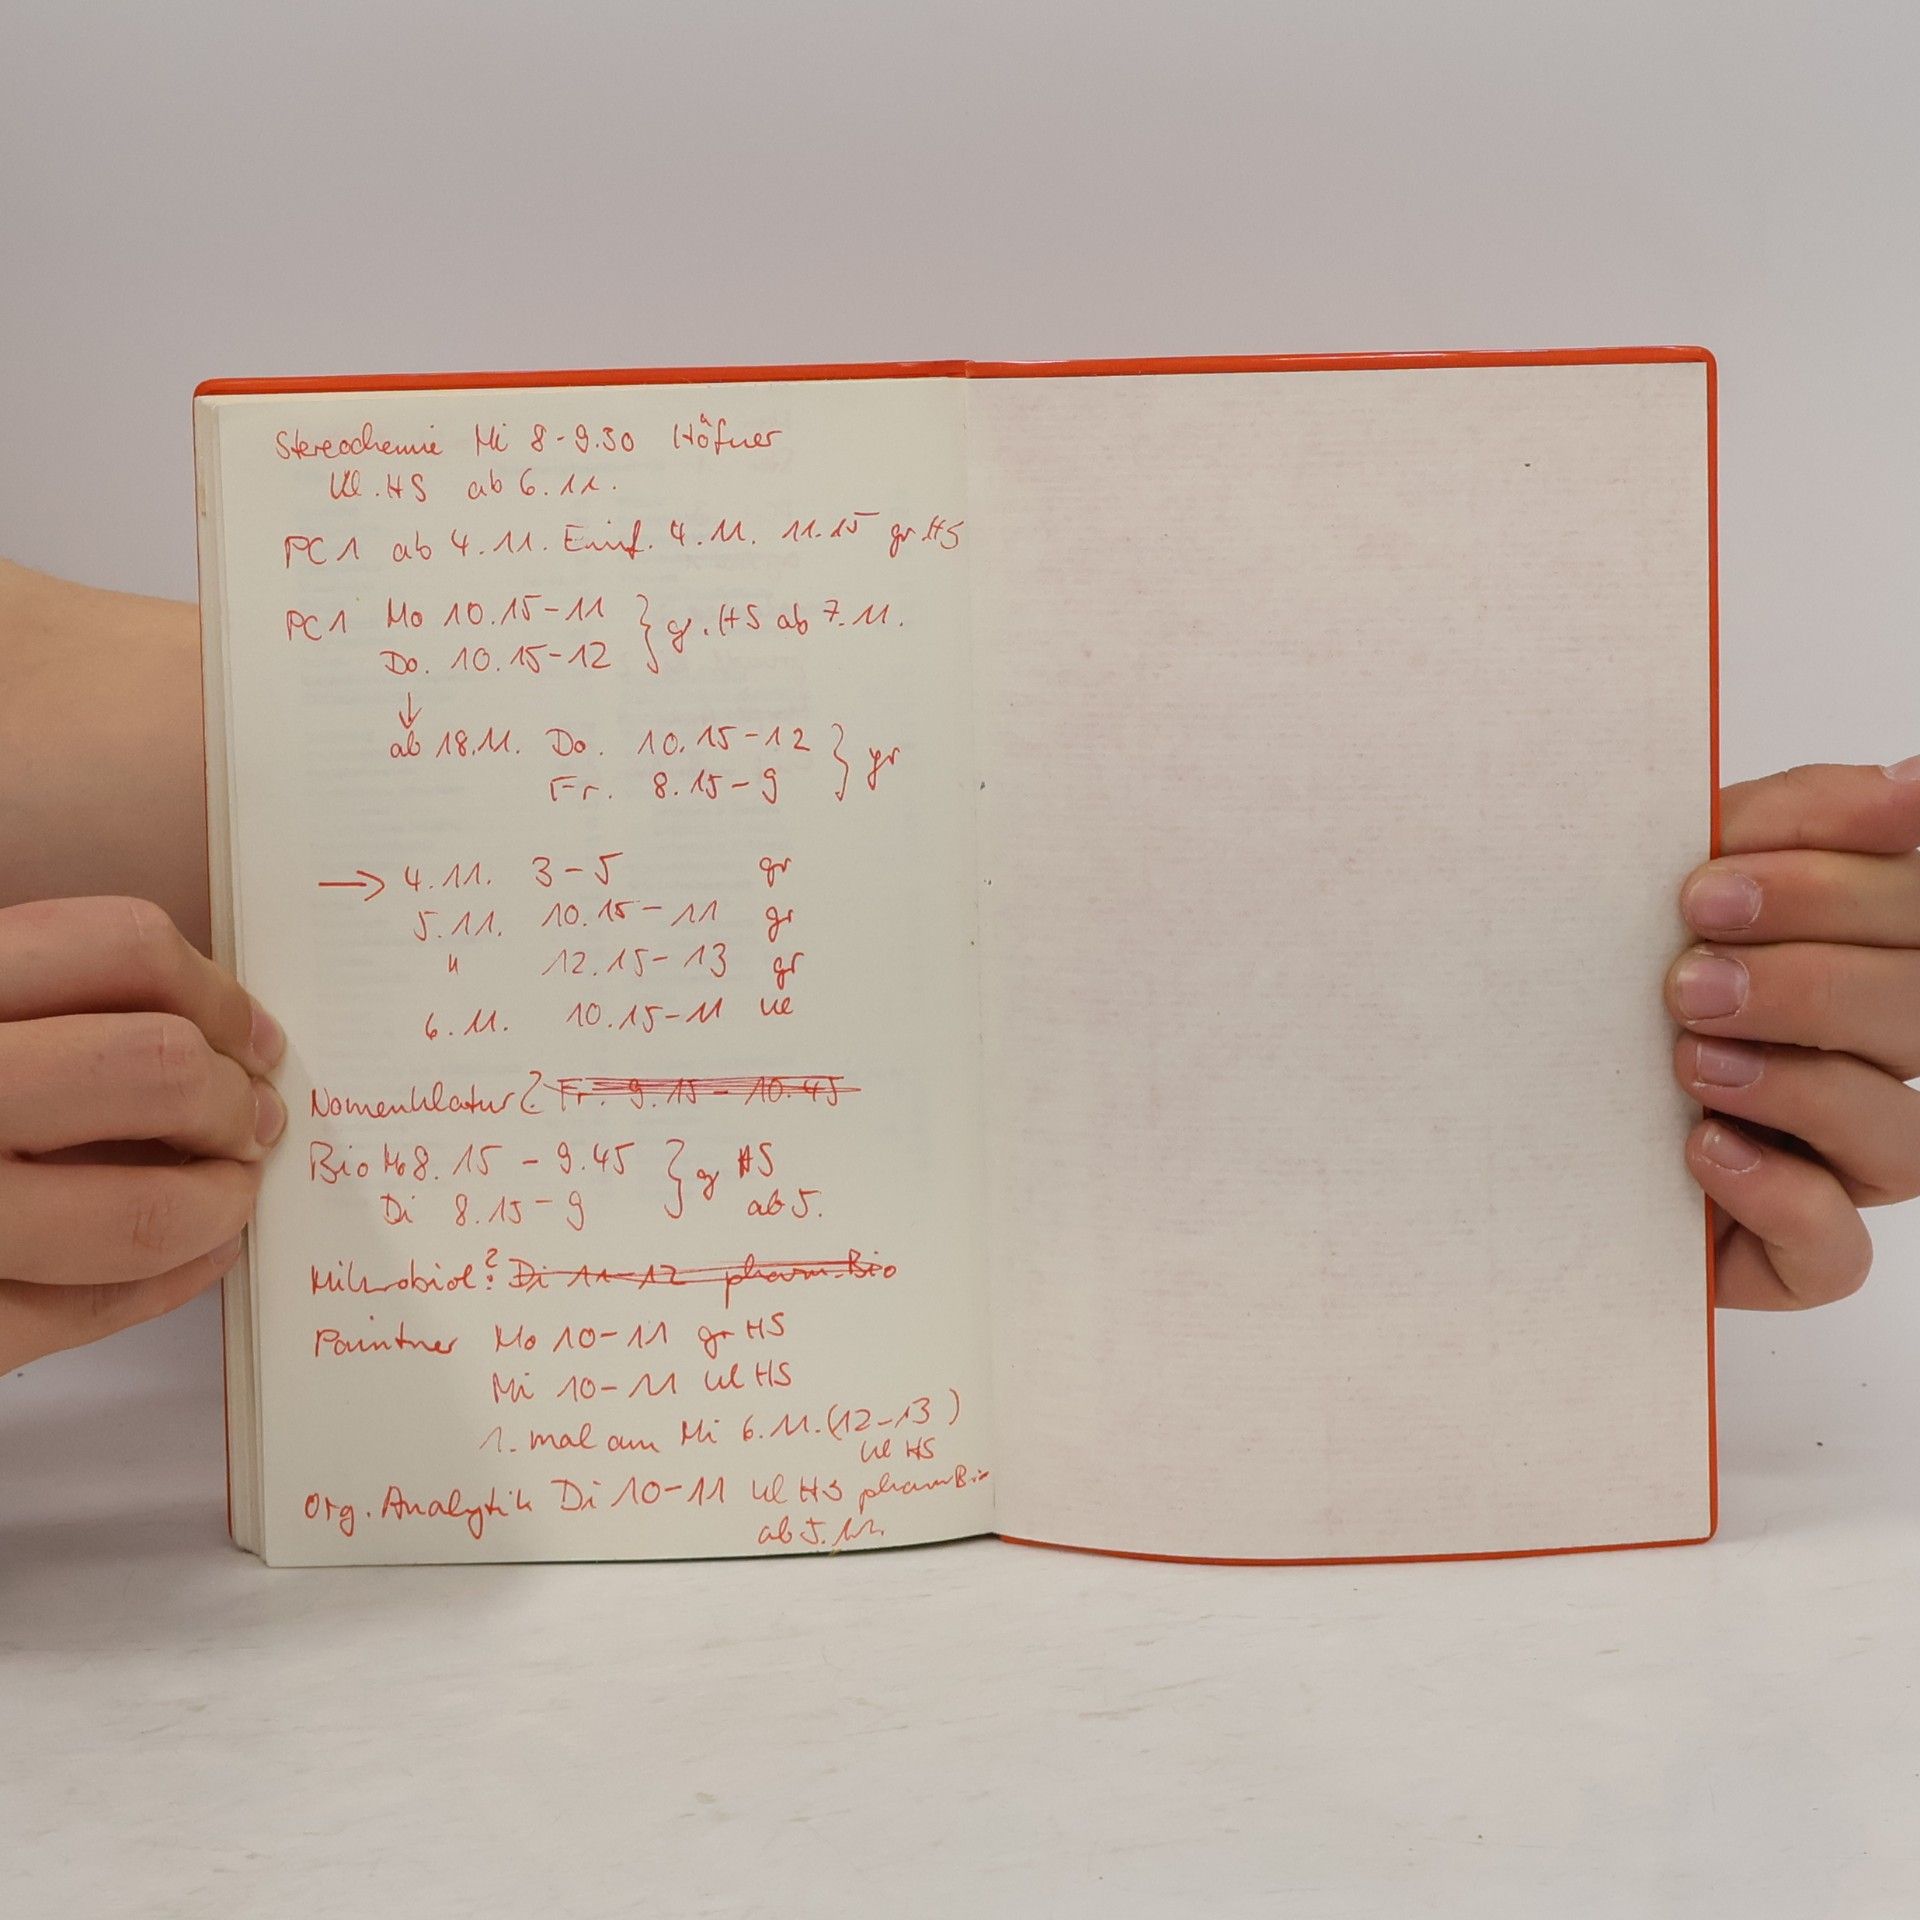 Stereochemie Mi 8-9.30 Höfner
Kl. HS ab 6.11.
PC1 ab 4.11. Einf. 4.11. 11.15 gr. HS
PC1 Mo 10.15-11 } gr. HS ab 7.11.
Do. 10.15-12
↓
ab 18.11. Do. 10.15-12 } gr
Fr. 8.15-9
→ 4.11. 3-5 gr
5.11. 10.15-11 gr
" 12.15-13 gr
6.11. 10.15-11 kl
Nomenklatur? Fr. 9.15-10.45
Bio Mo 8.15-9.45 } gr HS
Di 8.15-9 ab 5.
Mikrobiol? Di 11-12 pharm. Bio
Paintner Mo 10-11 gr HS
Mi 10-11 kl HS
1. mal am Mi 6.11. (12-13)
kl HS
Org. Analytik Di 10-11 kl HS pharm Bio
ab 5.11.